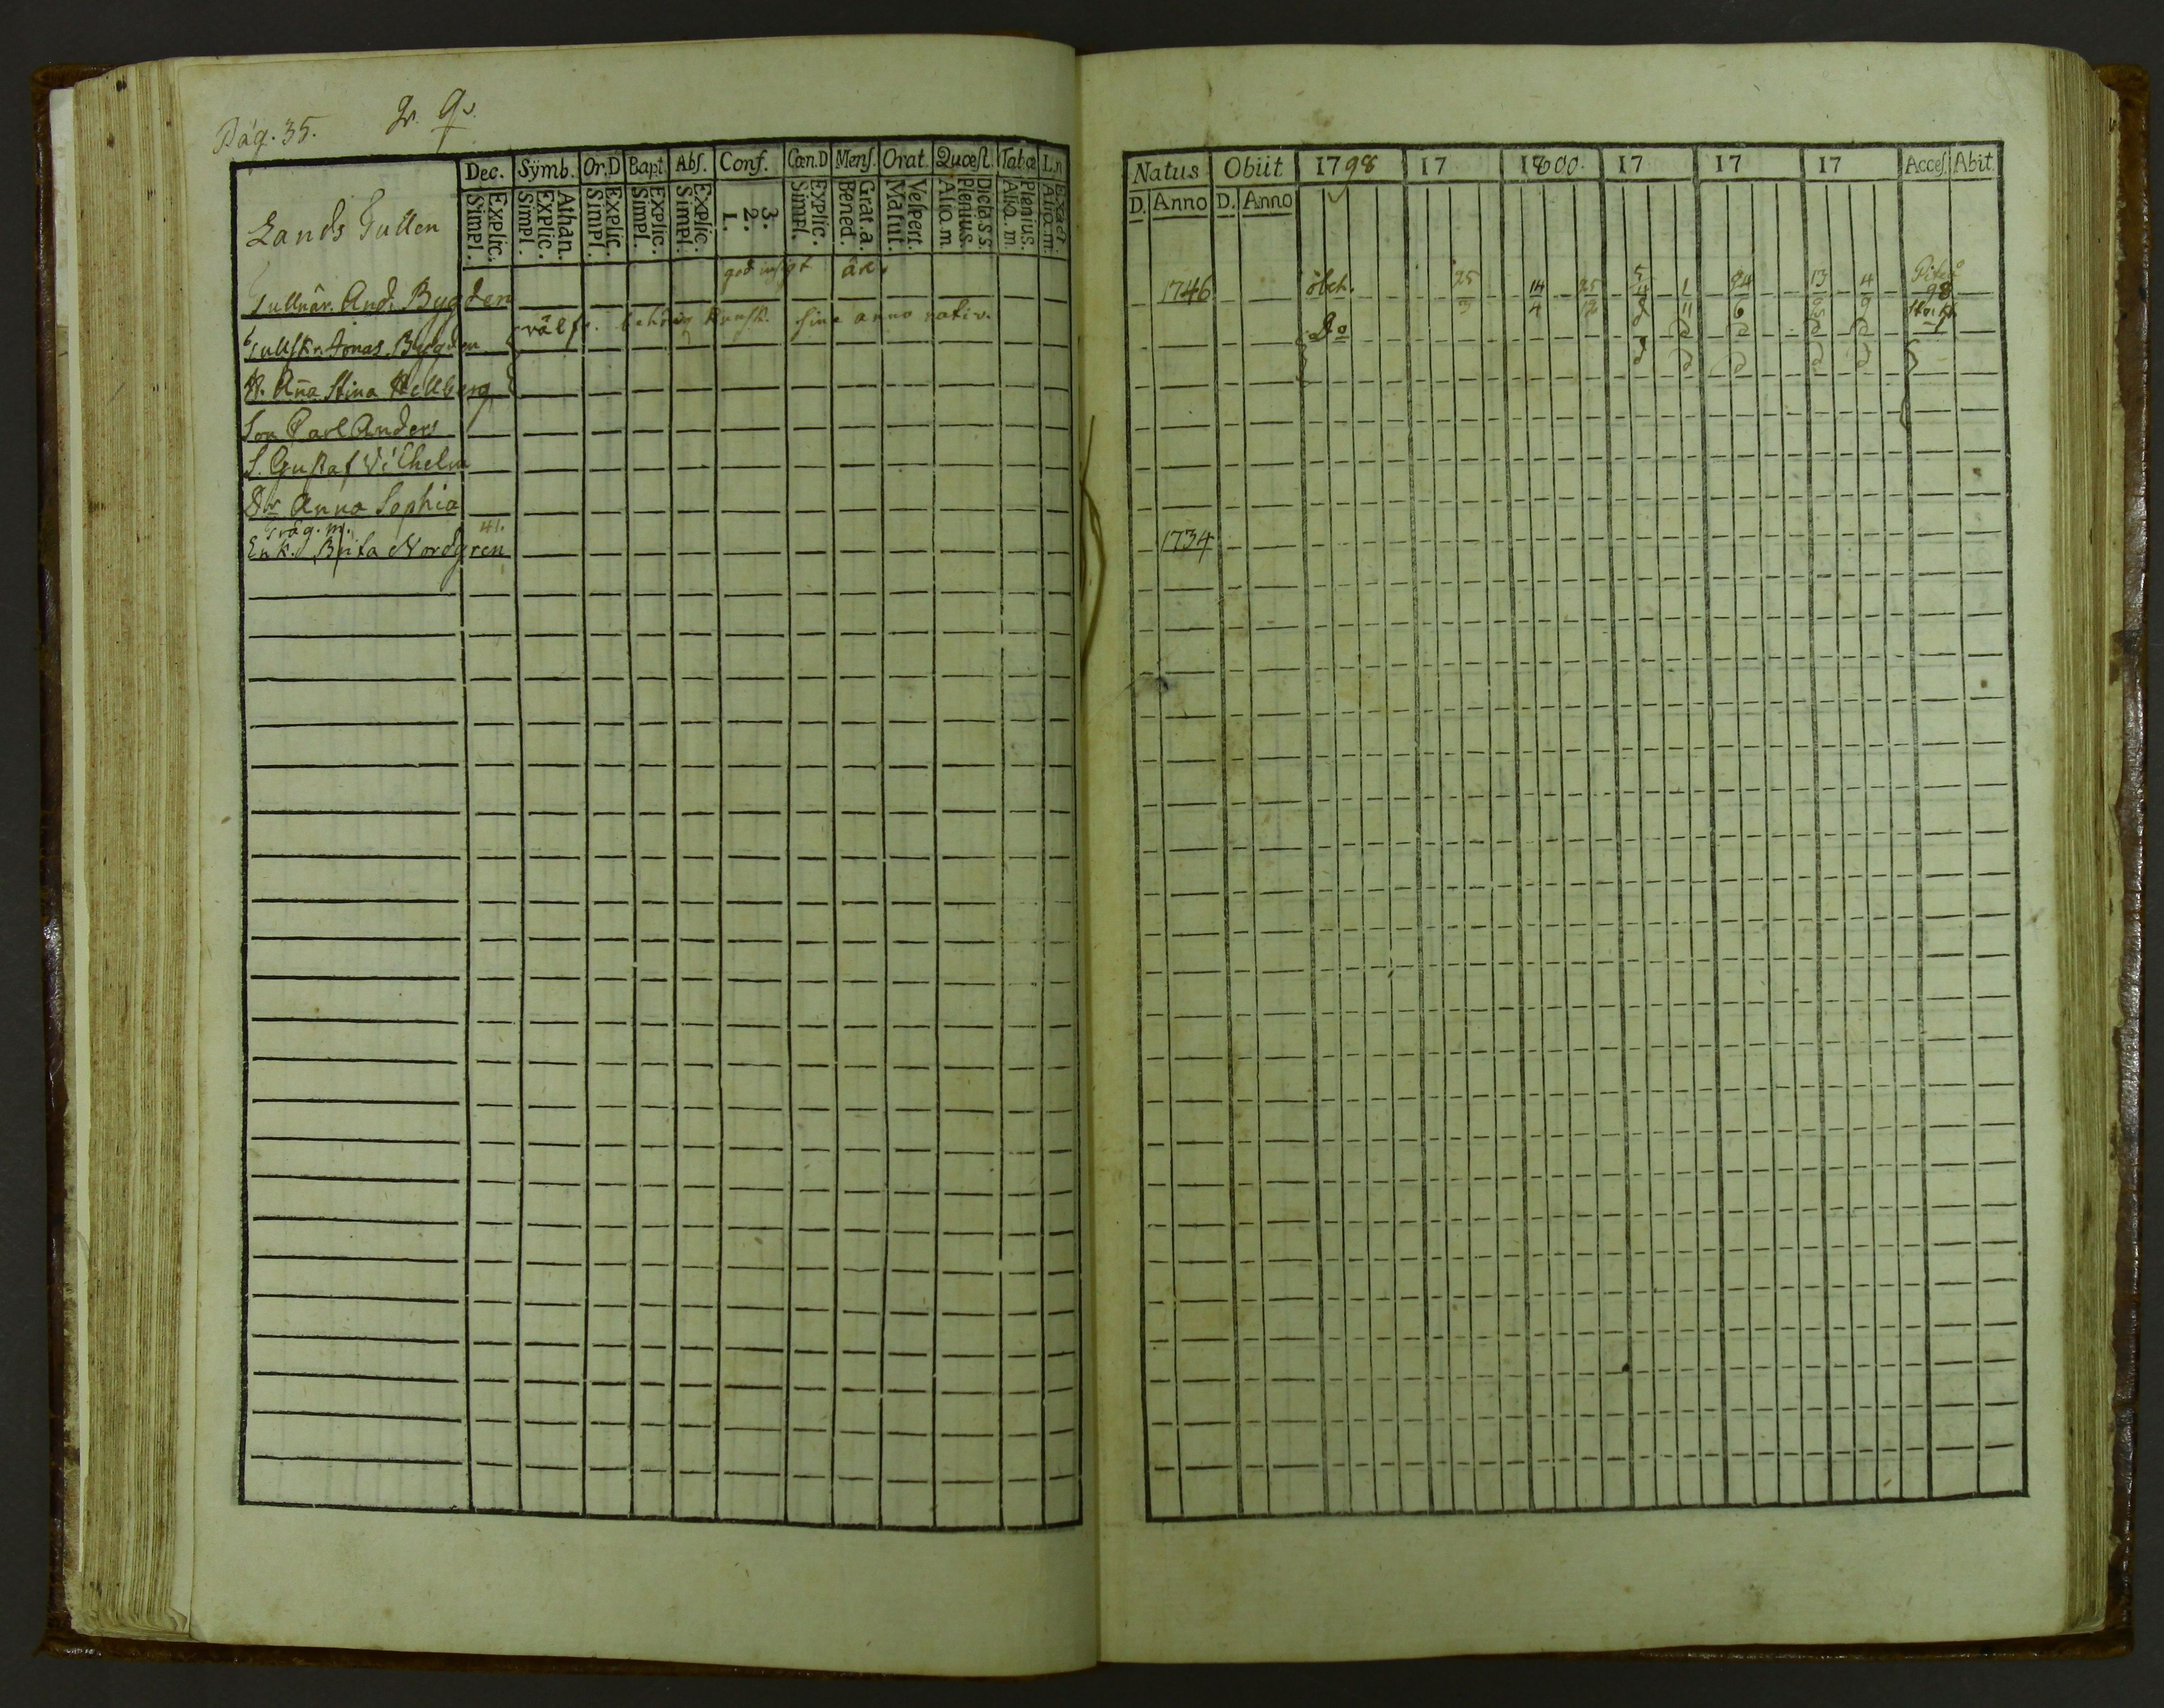 Pag. 35.
Dec. Sÿmb. Or.D Bapt. Abſ. Conf. Cœn.D Menſ. Orat. Quœſt. Tabœ
Simpl. Explic. Simpl. Explic. Athan. Simpl. Explic. Simpl. Explic. Simpl. Explic. 1. 2. 3. Simpl. Explic. Bened. Grat.a. Matut. Veſpert. Aliq.m. Plenius. Dicta.s.s. Aliq.m. Plenius. Aliq.m. Exact.
Lands Tullen
Tullnär. And. Bygden god insigt äre
Tullſkr. Jonas Bygden väl behörig kunsk. sine anno nativ.
H. Aña Stina Hellberg
Son Carl Anders
S. Gustaf Vilhelm
Dr Anna Sophia
Träg.m. 41.
Enk. Brita Nordgren
Natus Obiit 1798 17 1800. 17 17 17 Acceſ. Abit.
D. Anno D. Anno
1746 25 14 4 25 12 5 1 24 6 13 4 9 Piteå 98
Do
1734